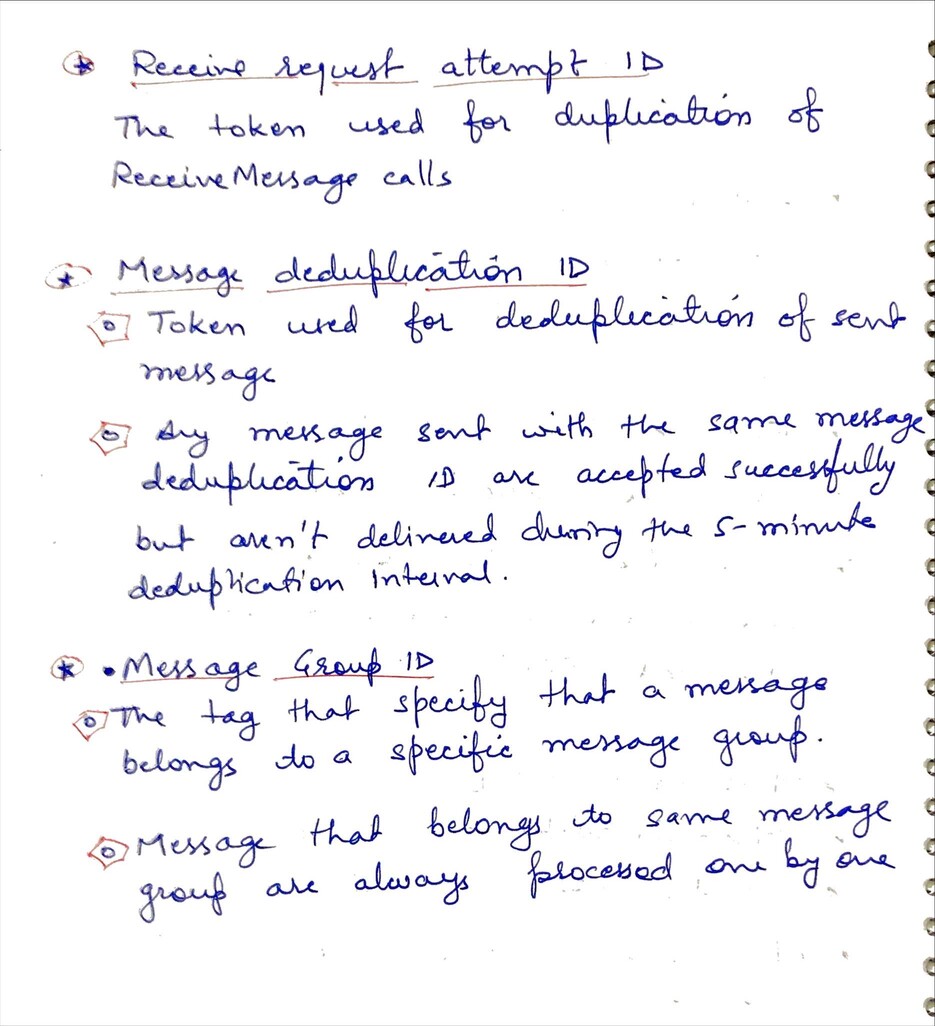 Receive request attempt ID
The token used for duplication of
ReceiveMessage calls
Message deduplication ID
Token used for deduplication of sent
message
Any message sent with the same message
deduplication ID are accepted successfully
but aren't delivered during the 5-minute
deduplication interval.
• Message Group ID
The tag that specify that a message
belongs to a specific message group.
Message that belongs to same message
group are always processed one by one